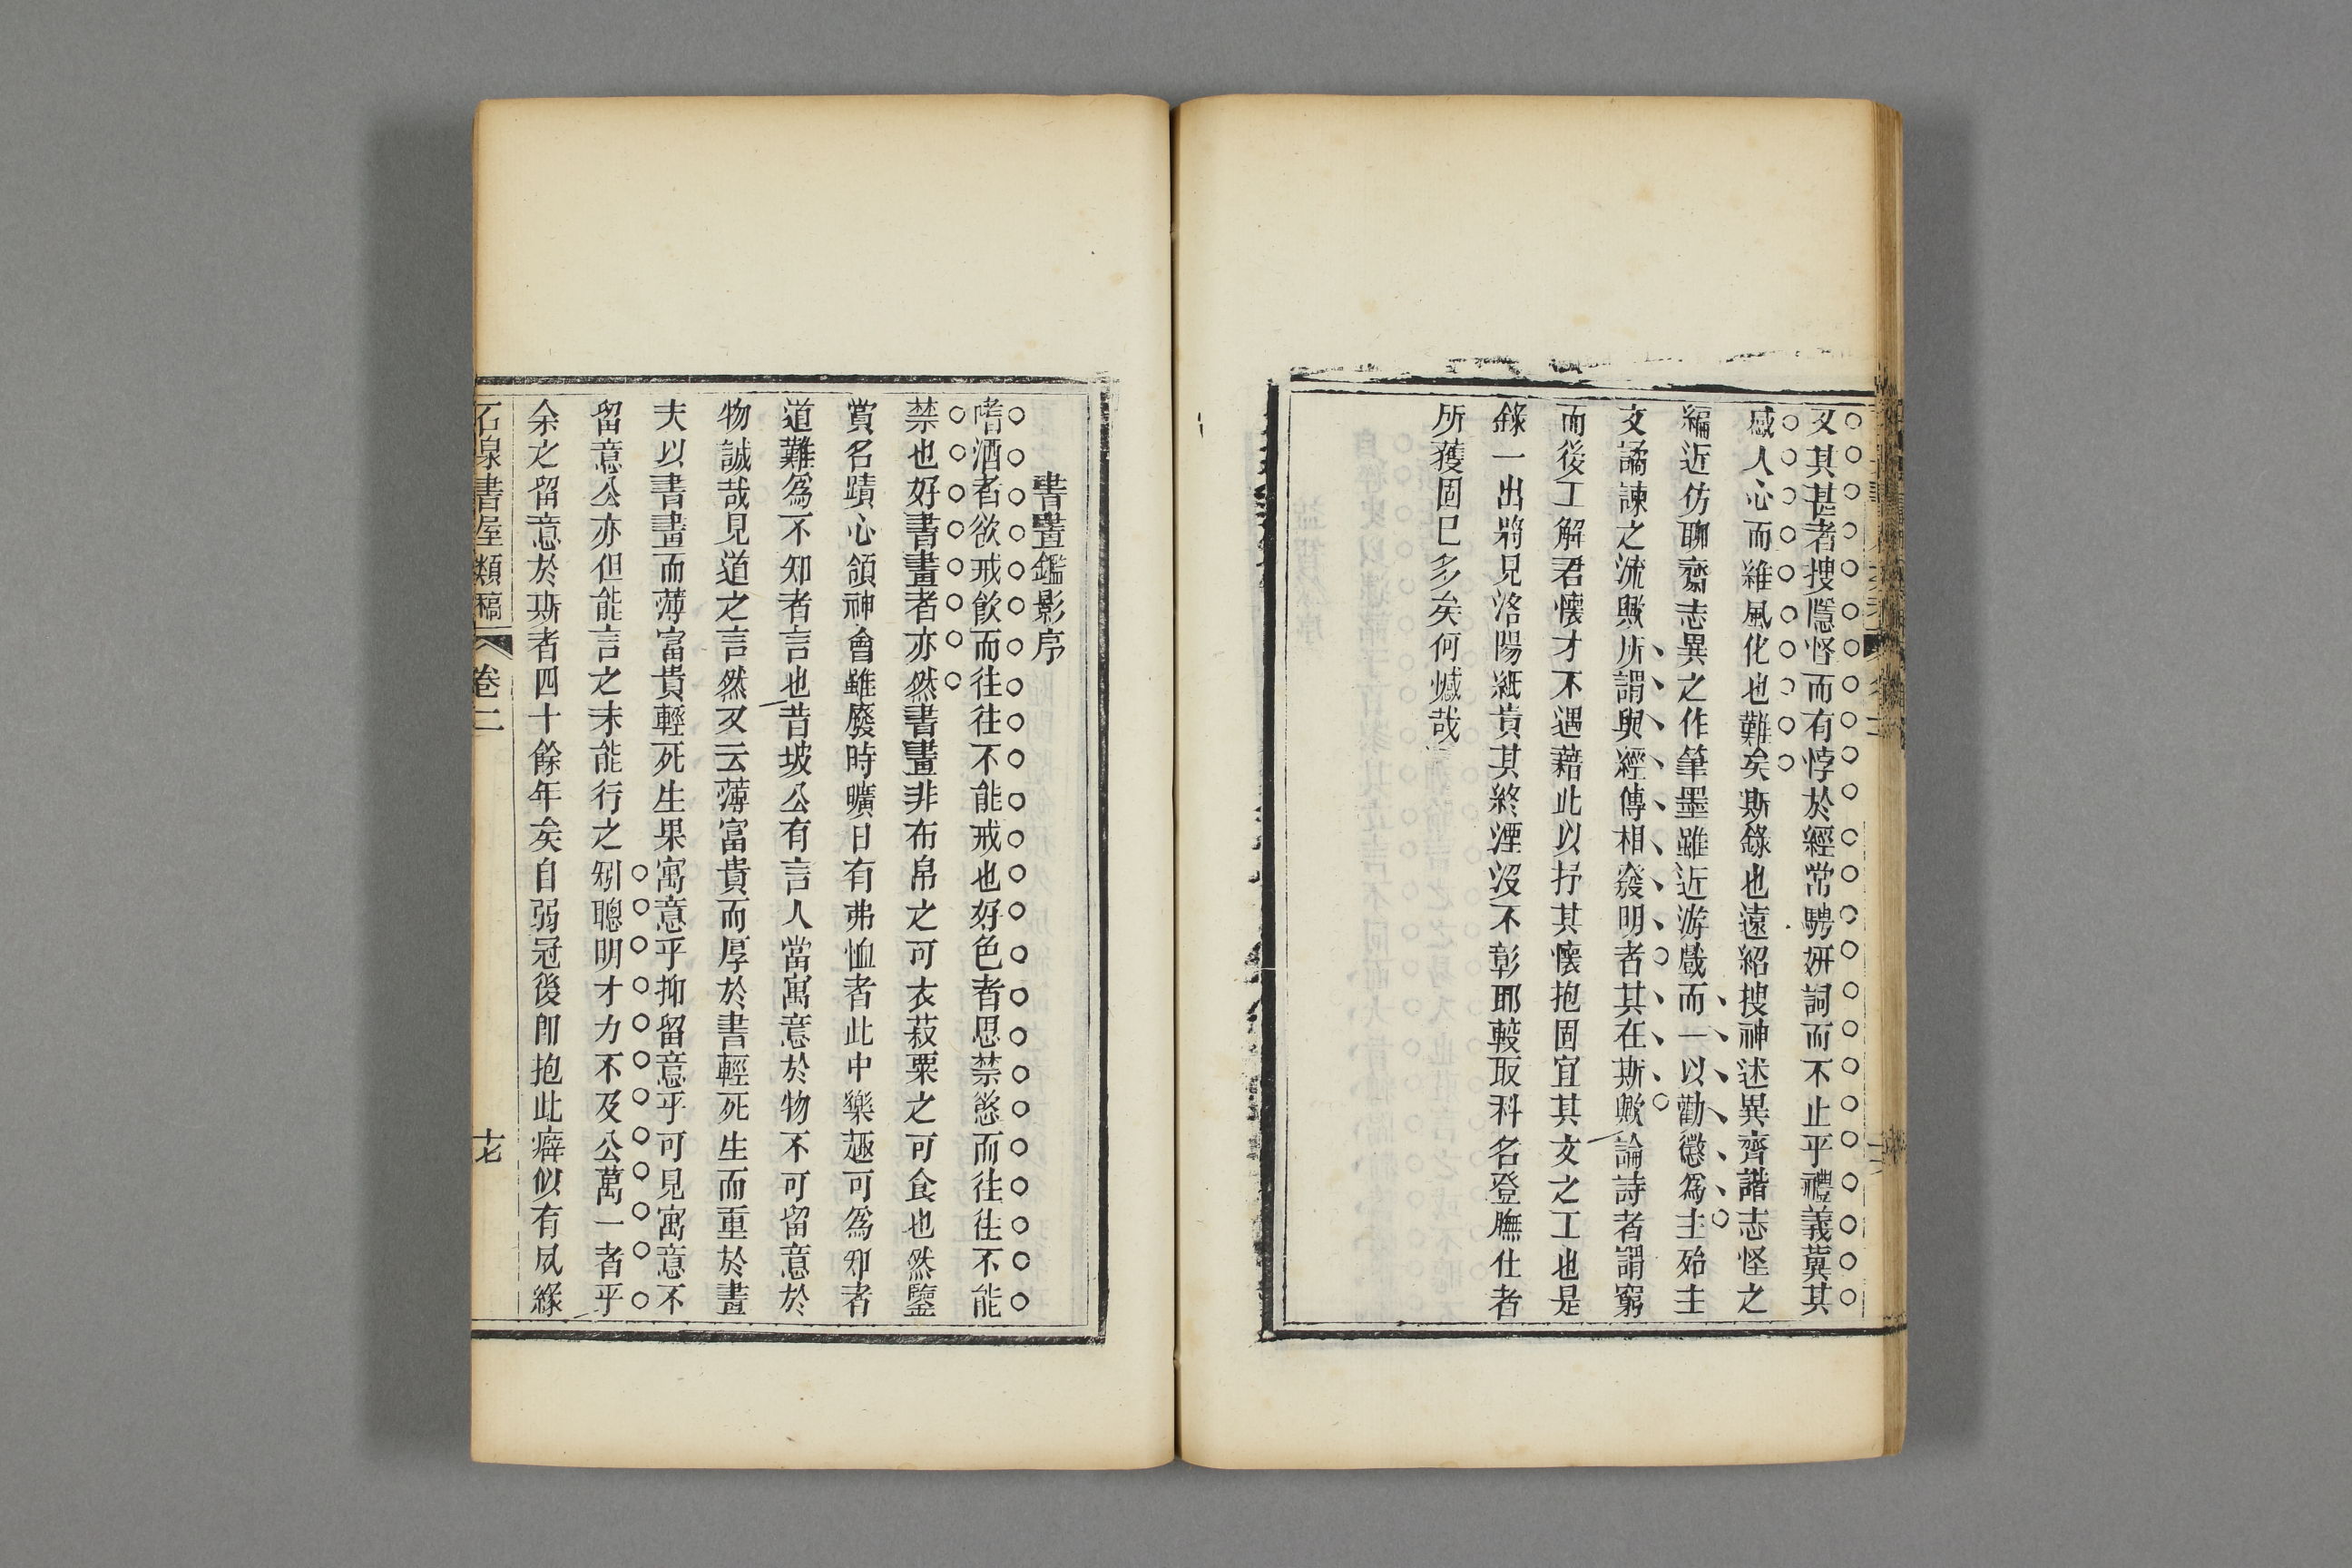 又其甚者搜隱怪而有悖於經常騁妍詞而不止乎禮義冀其
感人心而維風化也難矣斯錄也遠紹搜神述異齊諧志怪之
編近仿聊齋志異之作筆墨雖近游戲而一以勸懲爲主殆主
文譎諫之流歟所謂與經傳相發明者其在斯歟論詩者謂窮
而後工解君懷才不遇藉此以抒其懷抱固宜其文之工也是
錄一出將見洛陽紙貴其終湮沒不彰耶較取科名登膴仕者
所獲固已多矣何憾哉
書畫鑑影序
嗜酒者欲戒飲而往往不能戒也好色者思禁慾而往往不能
禁也好書畫者亦然書畫非布帛之可衣菽粟之可食也然鑒
賞名蹟心領神會雖廢時曠日有弗恤者此中樂趣可爲知者
道難爲不知者言也昔坡公有言人當寓意於物不可留意於
物誠哉見道之言然又云薄富貴而厚於書輕死生而重於畫
夫以書畫而薄富貴輕死生果寓意乎抑留意乎可見寓意不
留意公亦但能言之未能行之矧聰明才力不及公萬一者乎
余之留意於斯者四十餘年矣自弱冠後卽抱此癖似有夙緣
石泉書屋類稿 卷二 十七